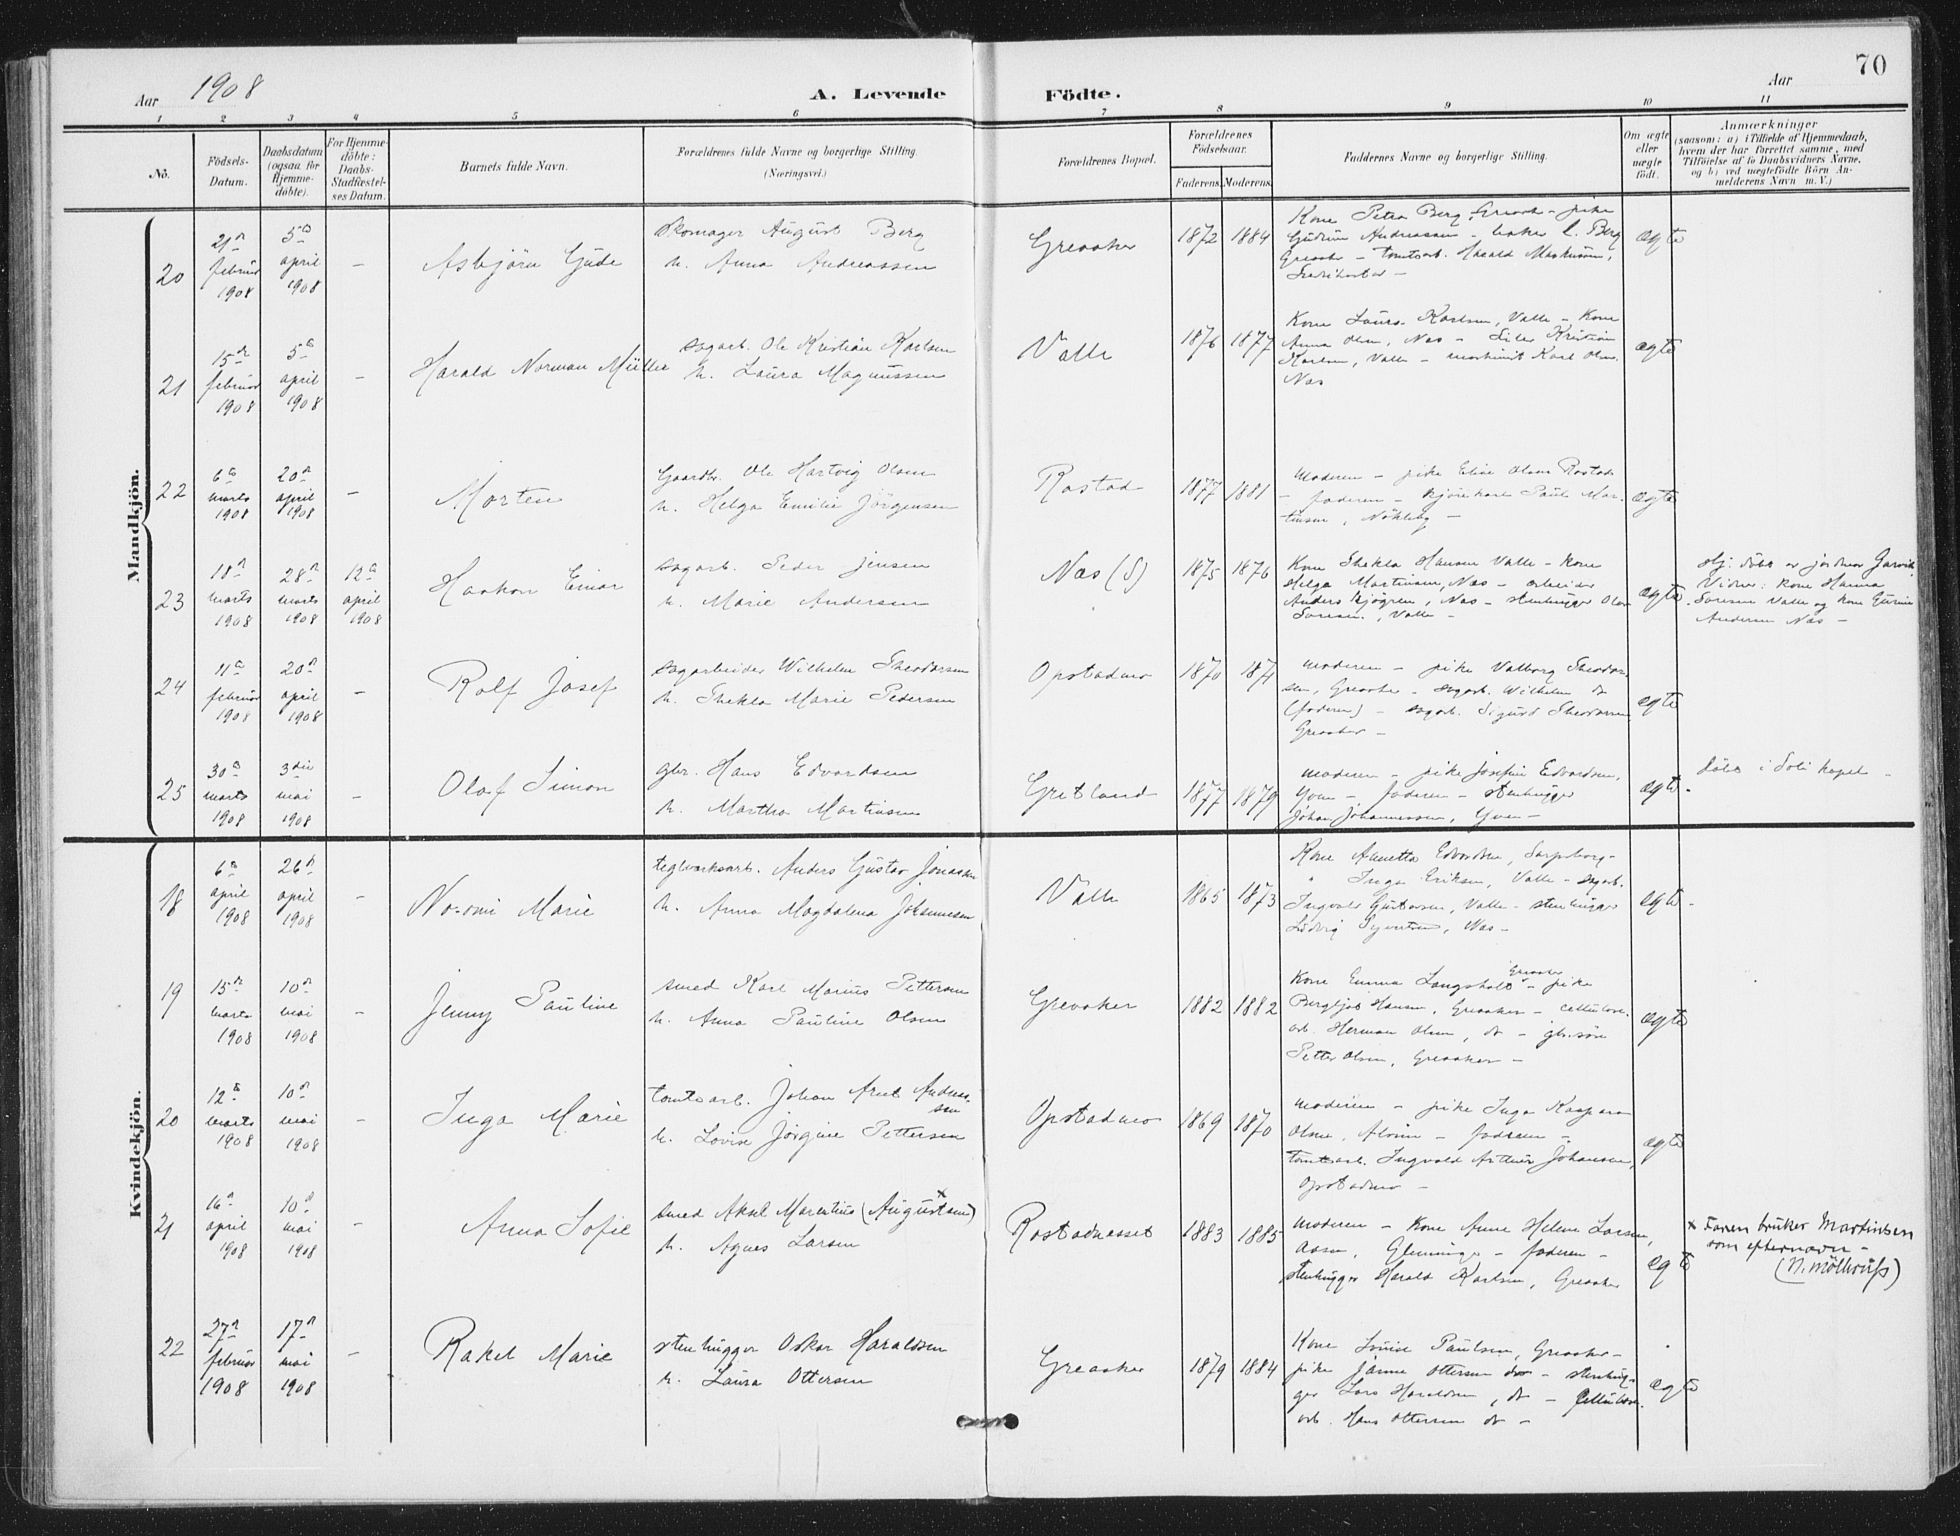 70
Aar 1908
A. Levende Födte.
Aar
1 2 3 4 5 6 7 8 9 10 11
No.
Födsels-Datum.
Daabsdatum (ogsaa for Hjemmedöbte).
For Hjemmedöbte: Daabs-Stadfæstelses Datum.
Barnets fulde Navn.
Forældrenes fulde Navne og borgerlige Stilling.
(Næringsvei.)
Forældrenes Bopæl.
Forældrenes Födselsaar.
Faderens. Moderens.
Faddernes Navne og borgerlige Stilling.
Om ægte eller uægte födt.
Anmærkninger
(saasom: a) i Tilfælde af Hjemmedaab,
hvem der har forrettet samme, med
Tilföielse af to Daabsvidners Navne,
og b) ved uægtefödte Börn An-
melderens Navn m. V.)
Mandkjön.
20
21 februar 1908
5 april 1908
–
Asbjörn Gude
Skomager August Berg
h. Anna Andreassen
Greaaker
1872 1884
Kone Petra Berg, Greaak – pike
Gudrun Andreassen – baker C. Berg
Greaaker – tomtearb. Harald
ægte
21
15 februar 1908
5 april 1908
–
Harald Norman Müller
sagarb. Ole Kristian Karlsen
h. Laura Magnussen
Valle
1876 1877
Kone Laura Karlsen, Valle – Kone
Anna Olsen, Nas – Kristian
Karlsen, Valle – maskinist Karl Olsen
Nas
ægte
22
6 marts 1908
20 april 1908
–
Morten
Gaardb. Ole Hartvig Olsen
h. Helga Emilie Jörgensen
Rostad
1877 1881
moderen – pike Elise Olsen Rostad
– faderen – kjörekarl Paul Mar-
tinsen, Nökleby –
ægte
23
18 marts 1908
28 marts 1908
12 april 1908
Haakon Einar
sagarb. Peder Jensen
h. Marie Andersen
Nas (S)
1875 1876
Kone Thekla Hansen Valle – kone
Helga Martinsen, Nas – arbeider
Anders Kjögren, Nas – stenhugger Olav
Sörensen, Valle –
ægte
Hj. döbt av jordmor
Vidner: kone Hanna
Sörensen Valle og kone
Andersen Nas –
24
11 februar 1908
20 april 1908
–
Rolf Josef
sagarbeider Wilhelm Theodorsen
h. Thekla Marie Pedersen
Opstadmo
1870 1871
moderen – pike Valborg Theodor-
sen, Greaaker – sagarb. Wilhelm do
(faderen) – sagarb. Sigurd Theodorsen
Greaaker –
ægte
25
30 marts 1908
3die mai 1908
–
Olaf Simon
gbr. Hans Edvardsen
h. Martha Martinsen
Gretland
1877 1879
moderen – pike Josefine Edvardsen,
Yven – faderen – stenhugger
Johan Johannessen, Yven –
ægte
döbt i Soli kapel –
Kvindekjön.
18
6 april 1908
26 april 1908
–
No-omi Marie
teglverksarb. Anders Gustav Jonassen
h. Anna Magdalena Johannesen
Valle
1865 1873
Kone Annette Edvardsen, Sarpsborg –
" Inga Eriksen, Valle – sagarb.
Ingvald Gustavsen, Valle – stenhugger
Ludvig Syvertsen, Nas –
ægte
19
15 marts 1908
10 mai 1908
–
Jenny Pauline
smed Karl Marius Pettersen
h. Anna Pauline Olsen
Greaaker
1882 1882
Kone Emma Langsholt Greaaker – pike
Bergljot Hansen, Greaaker – cellulose-
arb. Herman Olsen, do – gbr.sön
Petter Olsen, Greaaker –
ægte
20
12 marts 1908
10 mai 1908
–
Inga Marie
tomtearb. Johan Arnt Andreas-
sen
h. Lovise Jörgine Pettersen
Opstadmo
1869 1870
moderen – pike Inga Kaspara
Olsen, Alvim – faderen –
tomtearb. Ingvald Arthur Johansen,
Opstadmo –
ægte
21
16 april 1908
10 mai 1908
–
Anna Sofie
smed Aksel Martinius (Augustsen) x
h. Agnes Larsen
Rostadneset
1883 1885
moderen – Kone Anne Helene Larsen,
Aasen, Glemminge – faderen –
stenhugger Harald Karlsen, Greaaker
egte
x Faren bruker Martinsen
som efternavn –
22
27 februar 1908
17 mai 1908
–
Rakel Marie
stenhugger Oskar Haraldsen
h. Laura Ottersen
Greaaker
1879 1884
Kone Lovise Paulsen, Greaaker –
pike Janne Ottersen do – stenhug-
ger Lars Haraldsen, do – Cellulose-
arb. Hans Ottersen do –
ægte